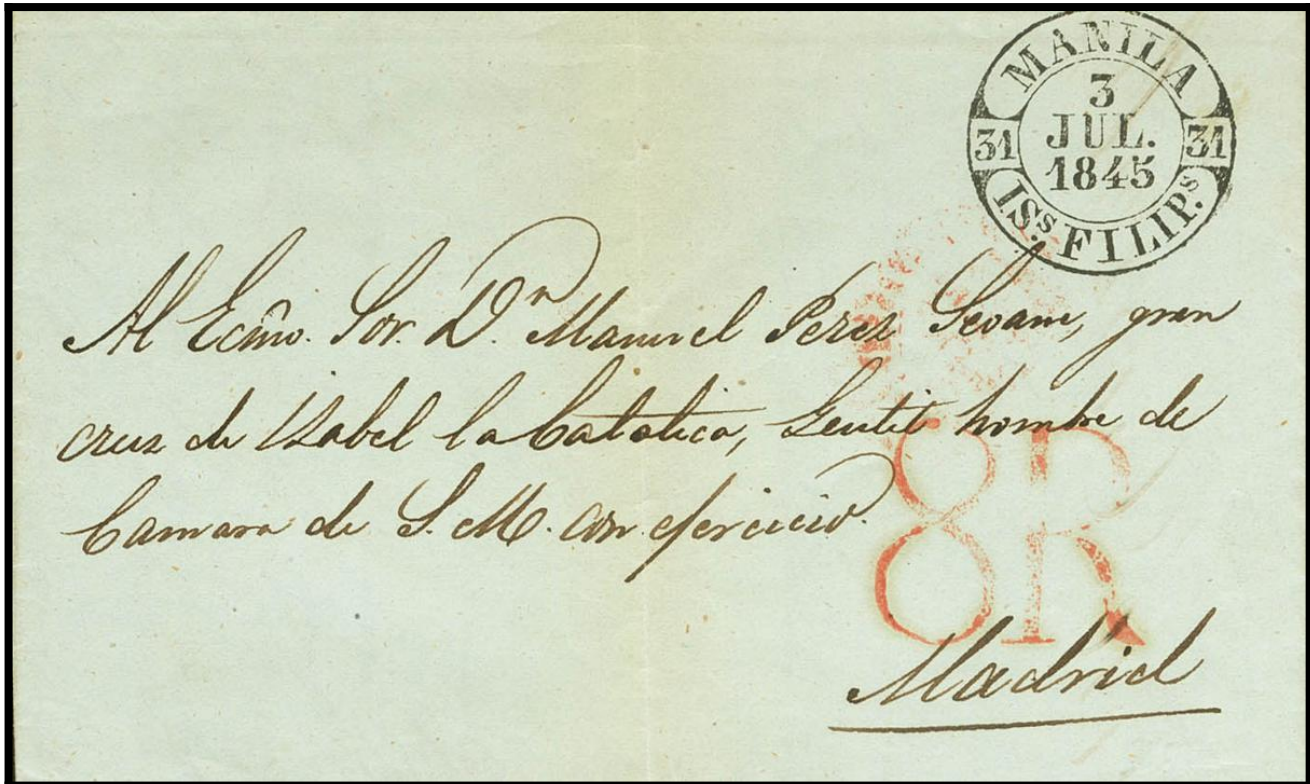 MANILA
3
JUL.
1845
31 31
IS.s FILIP.s
Al Ecmo. Sor. D.n Manuel Perez Seoane, gran
cruz de Ysabel la Catolica, Gentil hombre de
Camara de S. M. con ejercicio.
8R
Madrid